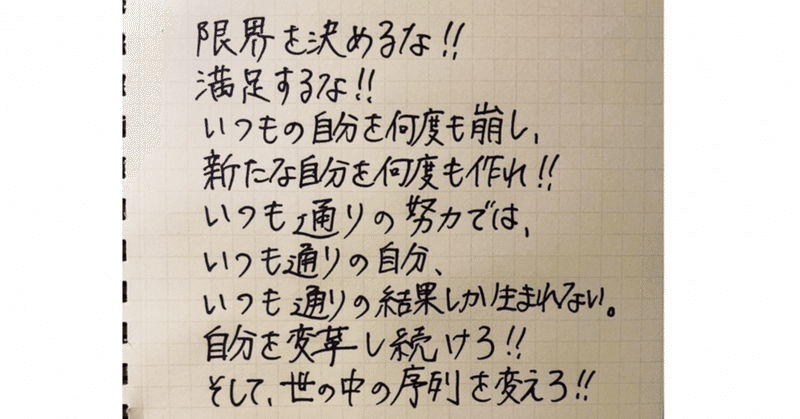 限界を決めるな!!
満足するな!!
いつもの自分を何度も崩し、
新たな自分を何度も作れ!!
いつも通りの努力では、
いつも通りの自分、
いつも通りの結果しか生まれない。
自分を変革し続けろ!!
そして、世の中の序列を変えろ!!